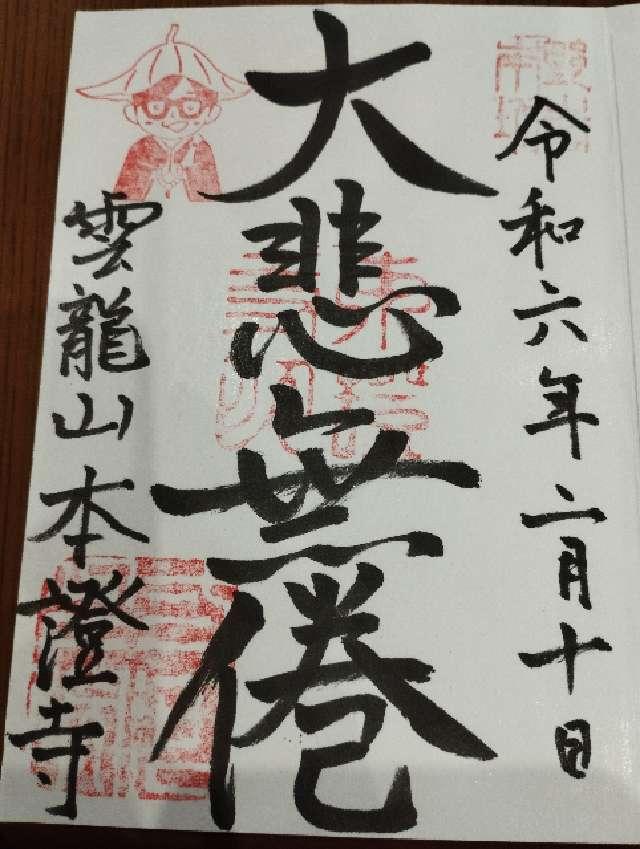 令和六年二月十日
大悲無倦
雲龍山本證寺